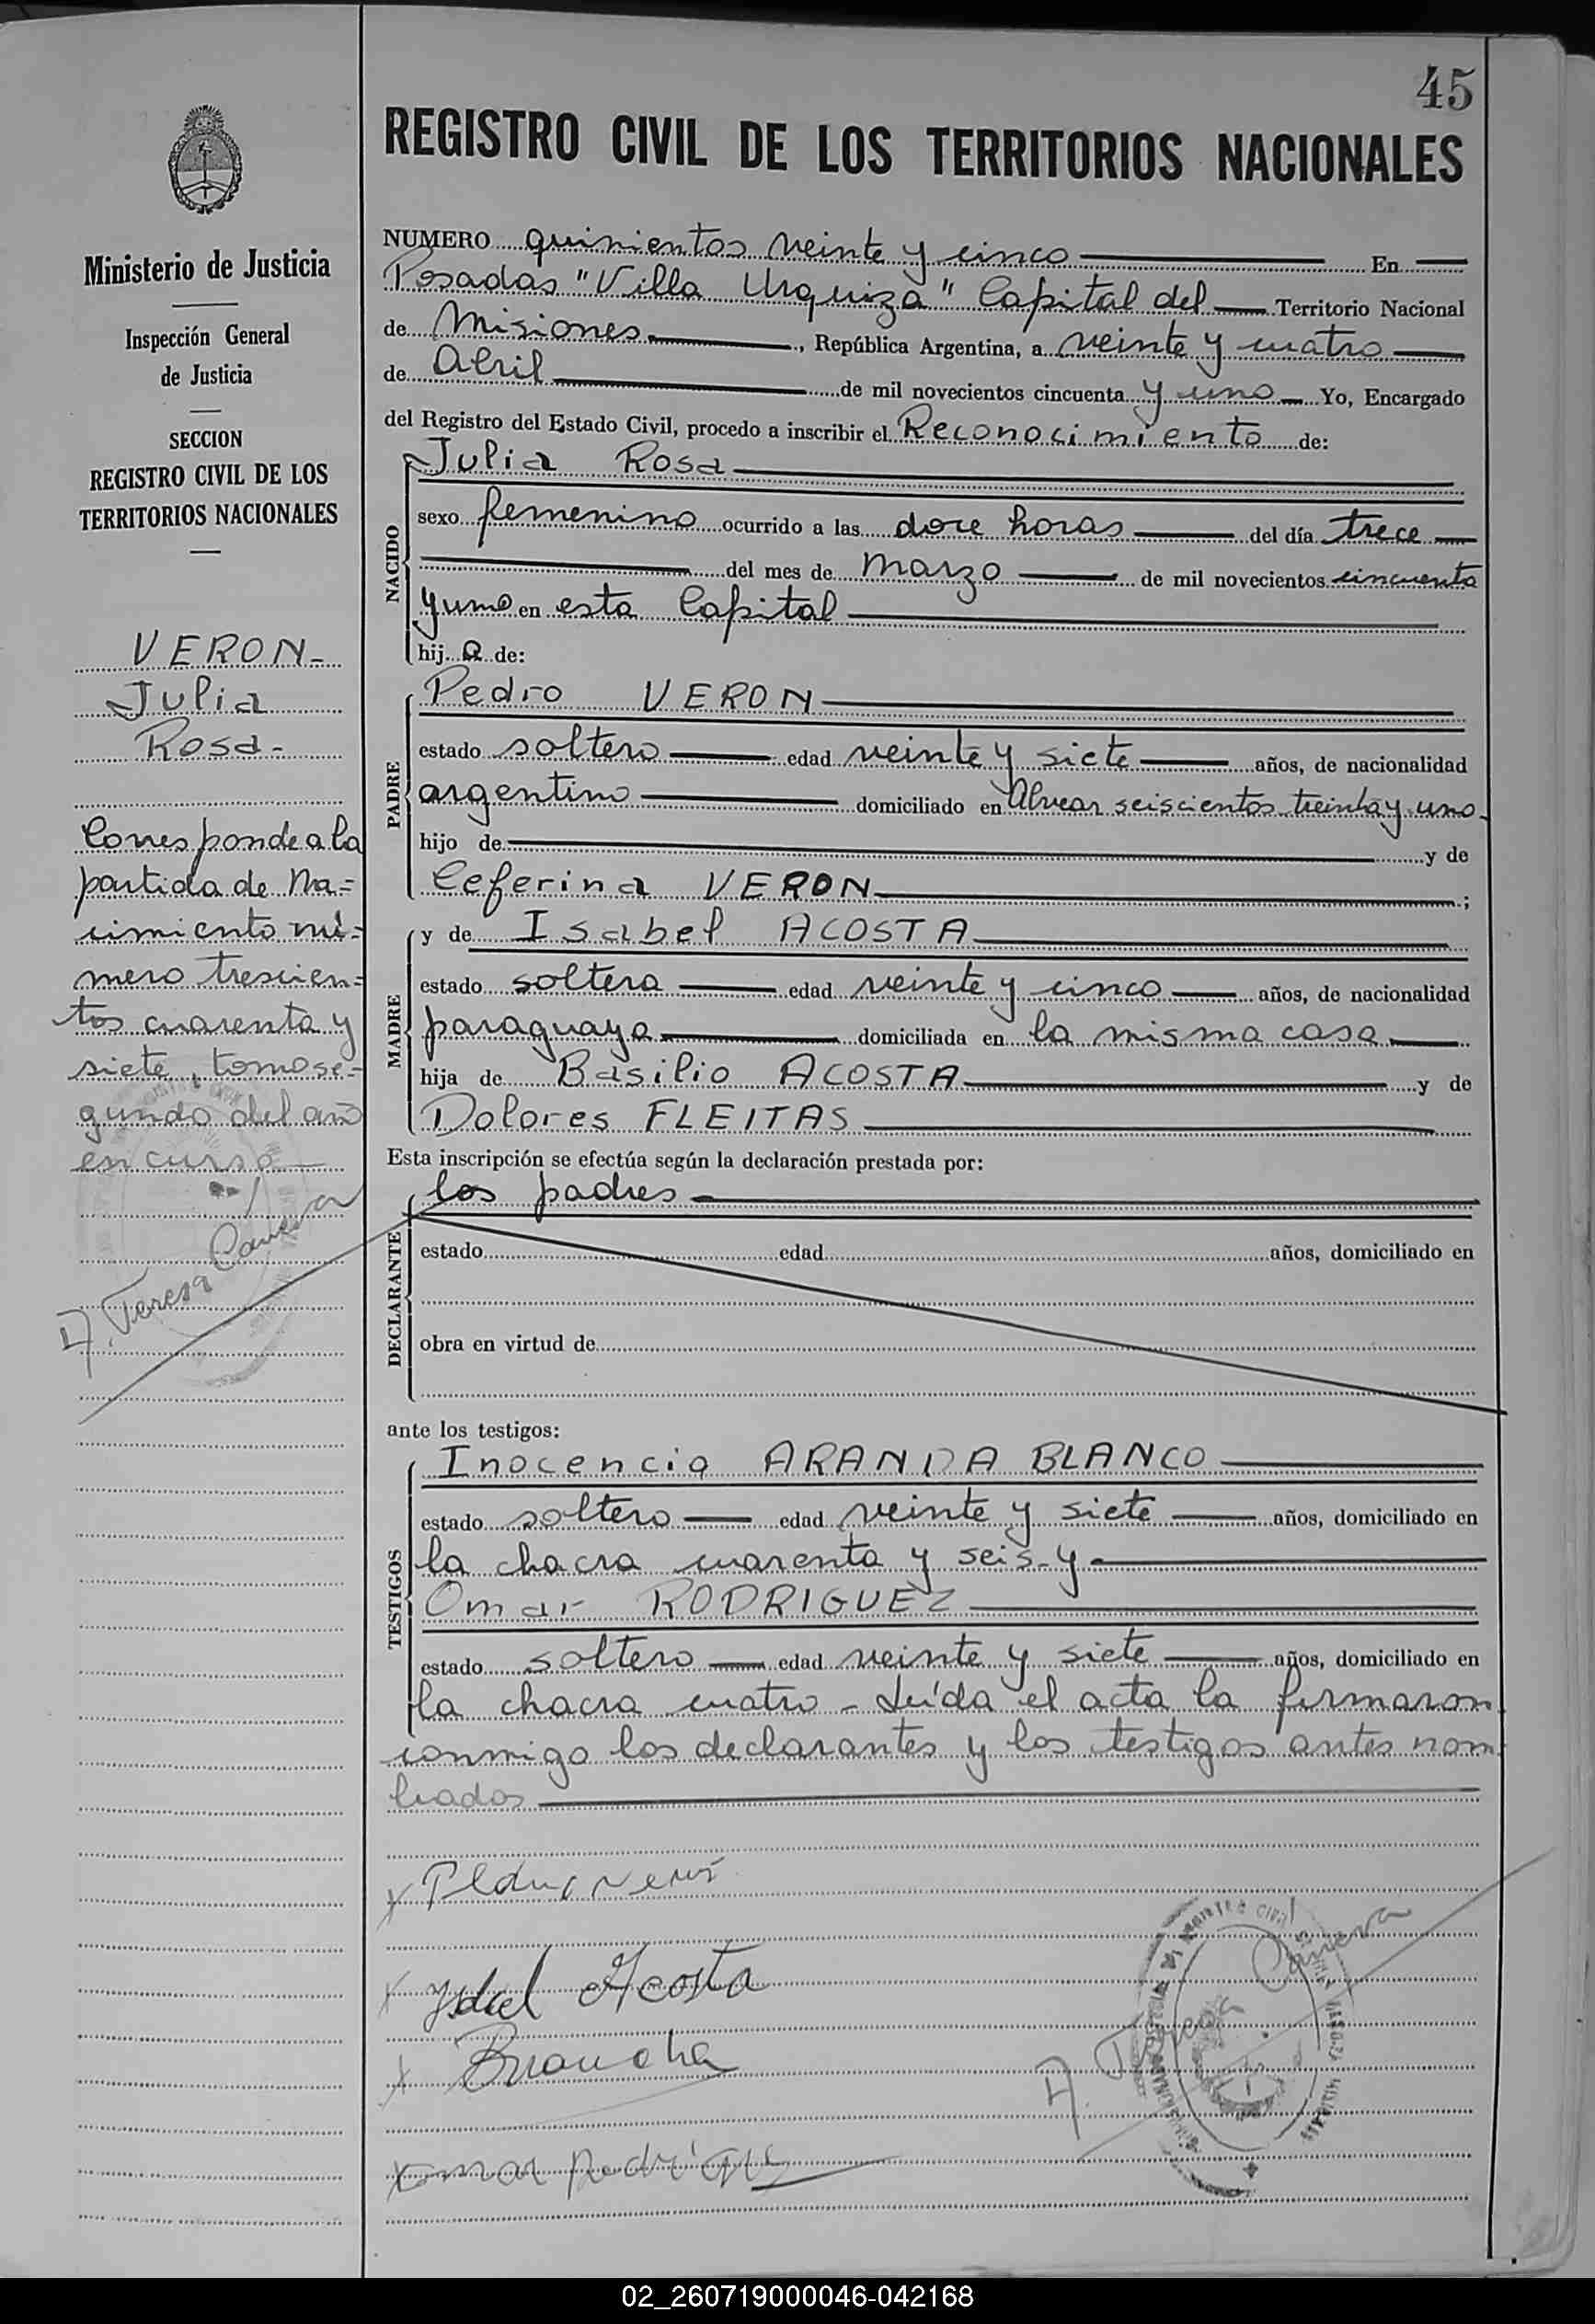 45
REGISTRO CIVIL DE LOS TERRITORIOS NACIONALES
Ministerio de Justicia
Inspección General
de Justicia
SECCION
REGISTRO CIVIL DE LOS
TERRITORIOS NACIONALES
VERON-
Julia
Rosa-
Corresponde a la
partida de Na=
cimiento nú=
mero trescien=
tos cuarenta y
siete, tomo se=
gundo del año
en curso
A. Teresa
NUMERO quinientos veinte y cinco En
Posadas "Villa Urquiza" Capital del Territorio Nacional
de Misiones, República Argentina, a veinte y cuatro
de Abril de mil novecientos cincuenta y uno Yo, Encargado
del Registro del Estado Civil, procedo a inscribir el Reconocimiento de:
NACIDO
Julia Rosa
sexo femenino ocurrido a las doce horas del día trece
del mes de Marzo de mil novecientos cincuenta
y uno en esta Capital
hija de:
PADRE
Pedro VERON
estado soltero edad veinte y siete años, de nacionalidad
argentino domiciliado en Alvear seiscientos treinta y uno
hijo de y de
Ceferina VERON;
MADRE
y de Isabel ACOSTA
estado soltera edad veinte y cinco años, de nacionalidad
paraguaya domiciliada en la misma casa
hija de Basilio ACOSTA y de
Dolores FLEITAS
Esta inscripción se efectúa según la declaración prestada por:
DECLARANTE
los padres
estado edad años, domiciliado en
obra en virtud de
ante los testigos:
TESTIGOS
Inocencio ARANDA BLANCO
estado soltero edad veinte y siete años, domiciliado en
la chacra cuarenta y seis-y
Omar RODRIGUEZ
estado soltero edad veinte y siete años, domiciliado en
la chacra cuatro - Leída el acta la firmaron
conmigo los declarantes y los testigos antes nom
brados
Acosta
Omar Rodriguez
A. Teresa
02_260719000046-042168